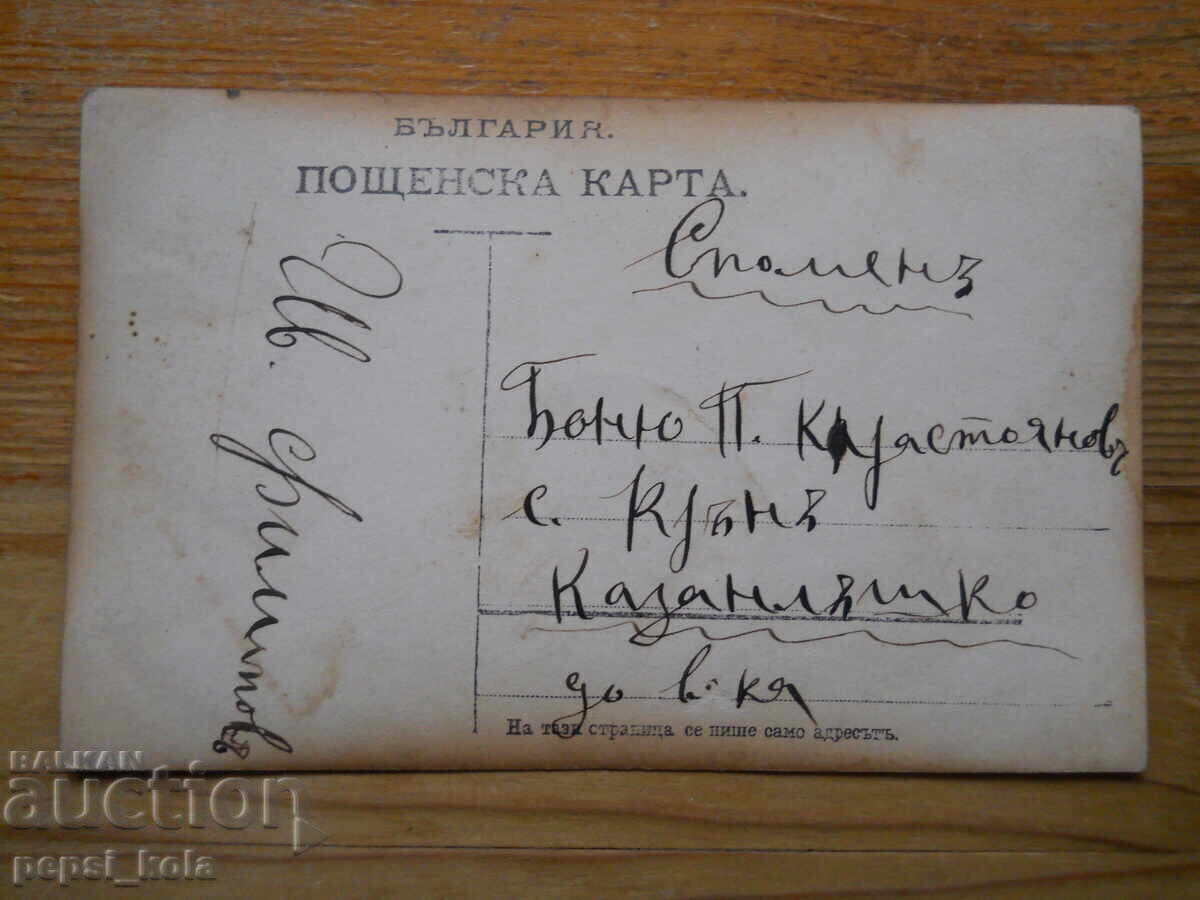 БЪЛГАРИЯ.
ПОЩЕНСКА КАРТА.
Споменъ
Бонню П. Карастояновъ
с. Крънъ
Казанлъшко
до в-ка
На тази страница се пише само адресътъ.
Ив. Филиповъ
BALKAN
auction
pepsi_kola